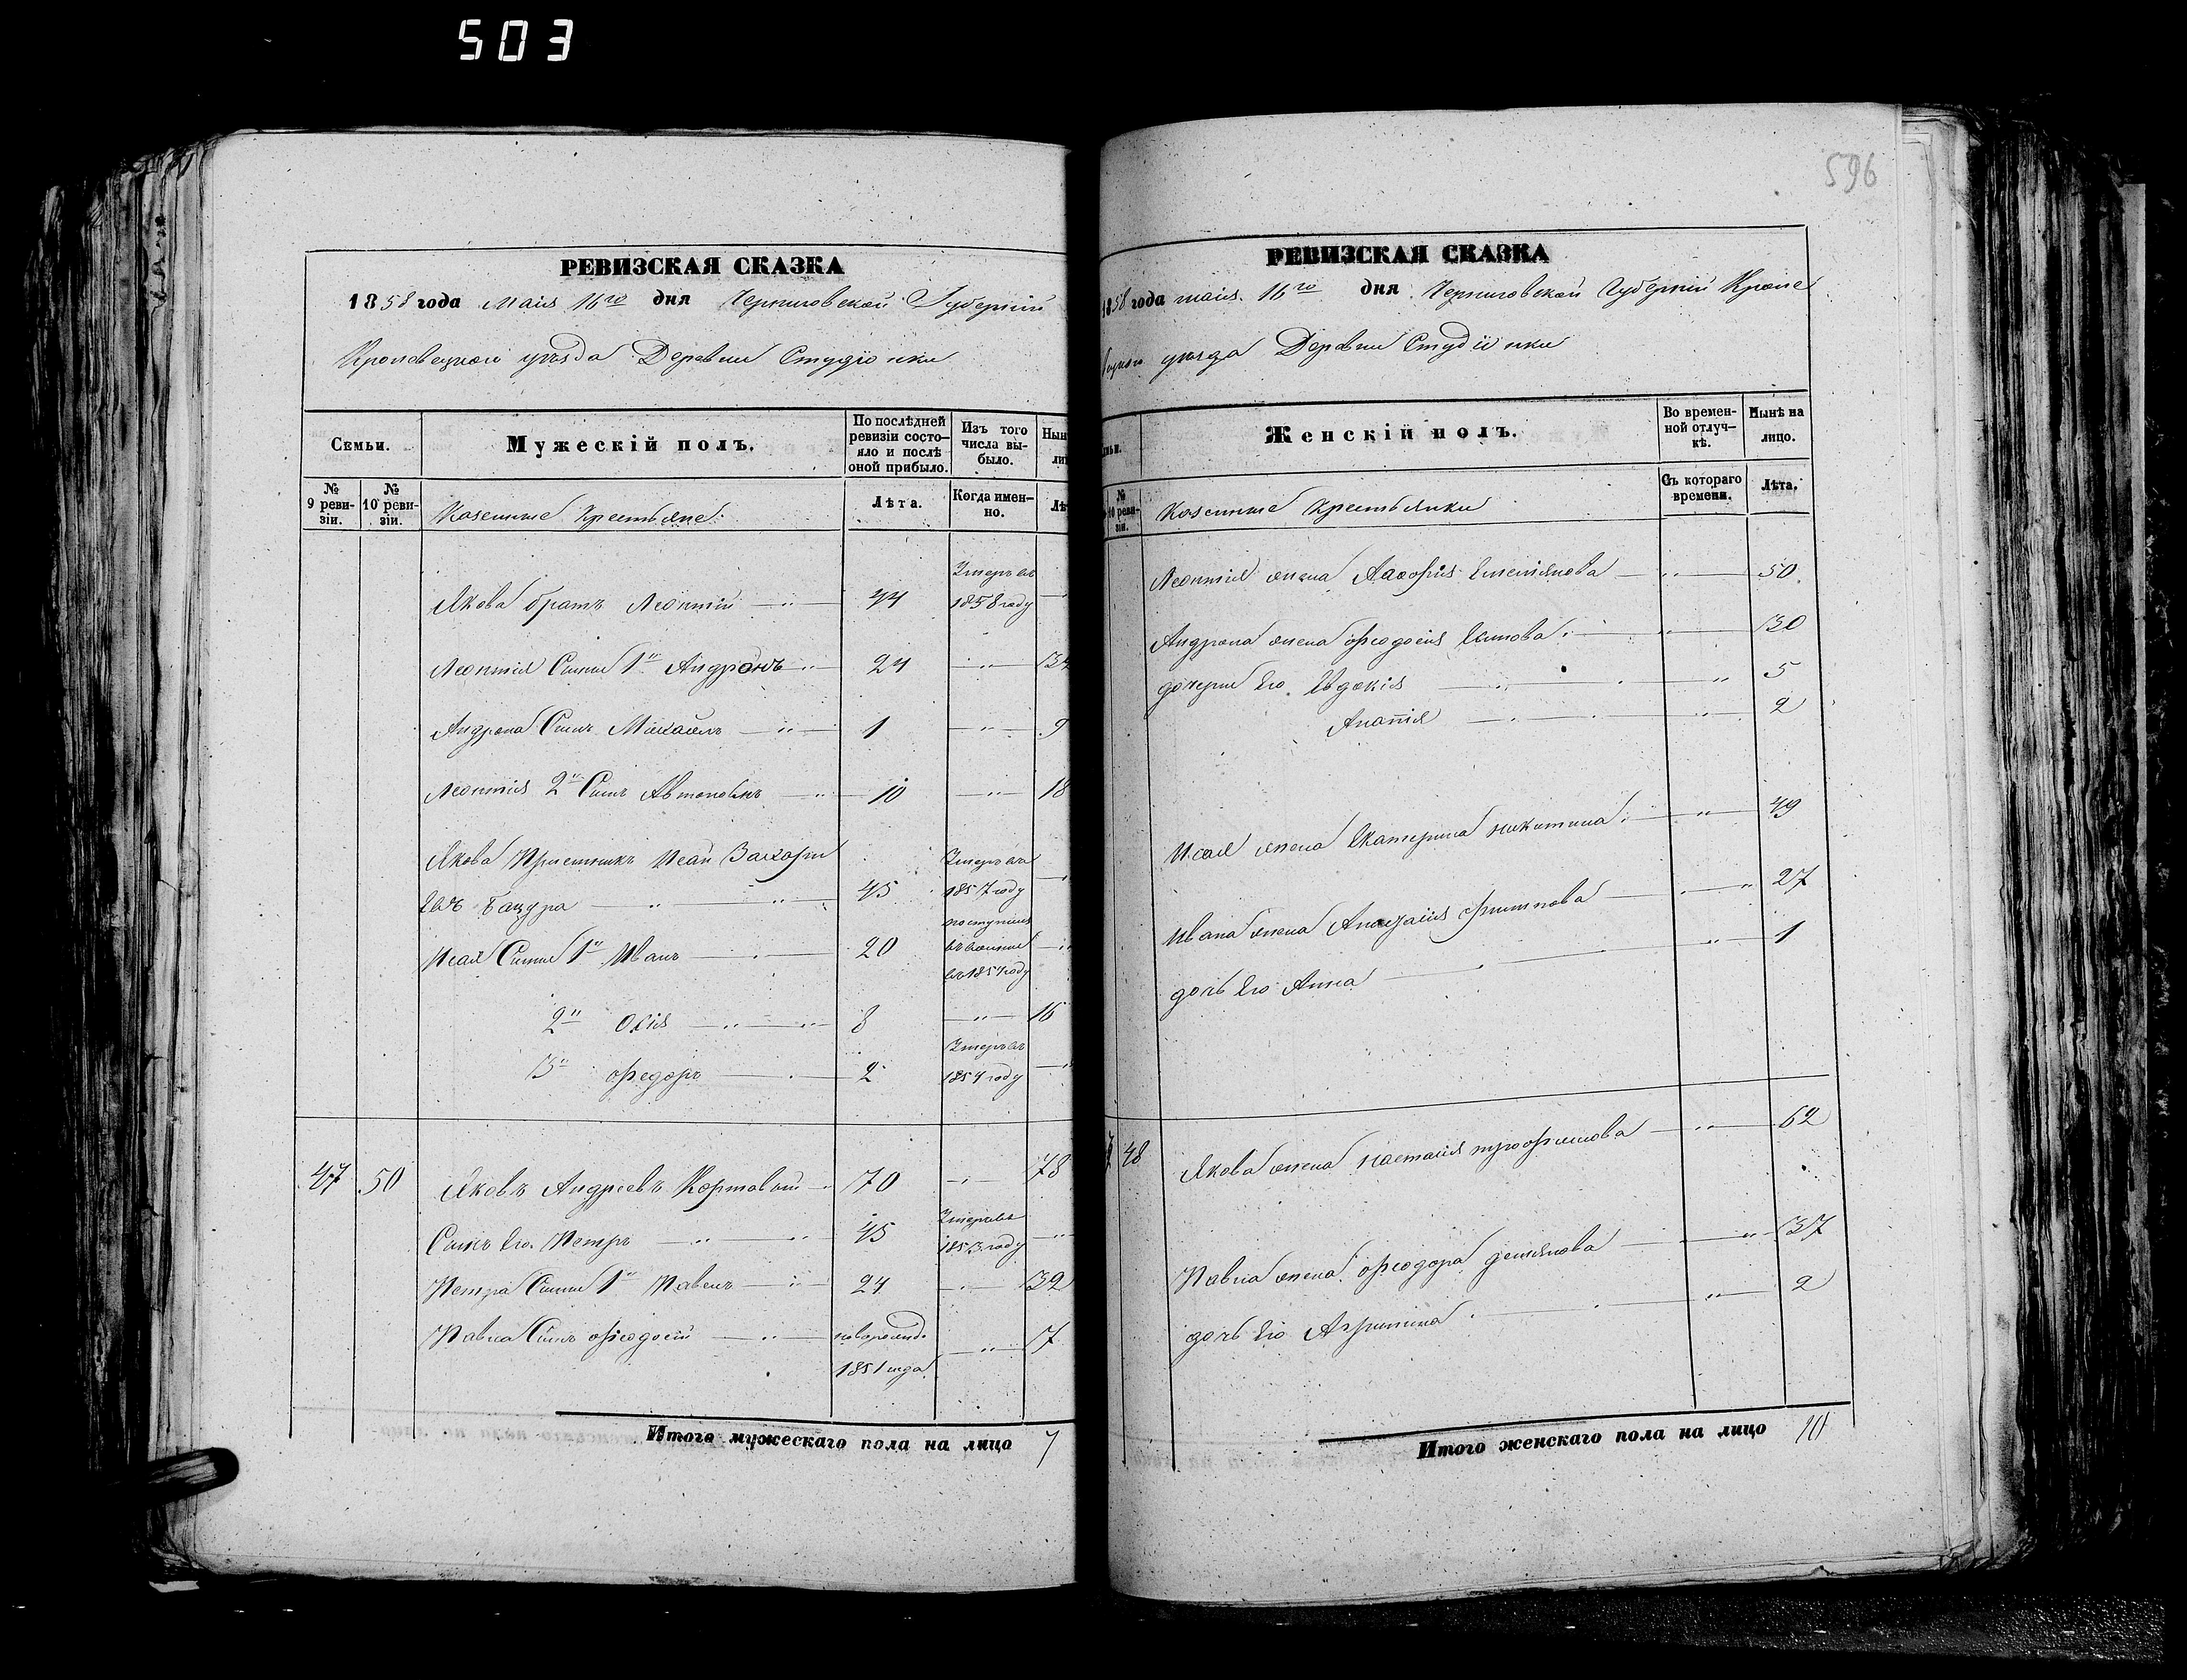 503
596
РЕВИЗСКАЯ СКАЗКА
1858 года Маия 16го дня Черниговской Губерніи
Кролевецкого уѣзда Деревни Студіонки
Семьи.
Мужескій полъ.
По послѣдней ревизіи состояло и послѣ оной прибыло.
Изъ того числа выбыло.
№ 9 ревизіи.
№ 10 ревизіи.
Казенные Крестьяне
Лѣта.
Когда именно.
Якова братъ Леонтій 44 Умеръ въ 1858 году
Леонтія Сыны 1й Андронъ 24
Андрона Сынъ Михаилъ 1 9
Леонтія 2й Сынъ Автономъ 10 18
Якова Пріемникъ Исай Захарьевъ 45 Умеръ въ 1857 году
Исая Сыны 1й Иванъ 20 поступилъ
2й 8 16
3й Федоръ 2 Умеръ въ
47 50 Яковъ Андреевъ Кортавый 70 78
Сынъ Его Петръ 45 Умеръ въ 1853 году
Петра Сыны 1й Павелъ 24 32
Павла Сынъ Феодосій новорожд. 1851 года 7
Итого мужескаго пола на лицо 7
РЕВИЗСКАЯ СКАЗКА
1858 года маия 16го дня Черниговской Губерніи Кроле
уѣзда Деревни Студіонки
Женскій полъ.
Во временной отлучкѣ.
Нынѣ на лицо.
№ 10 ревизіи.
Казенные Крестьянки
Съ котораго времени.
Лѣта.
Леонтія жена Емелянова 50
Андрона жена Феодосія 30
дочери Его Евдокія 5
2
Исая жена Екатерина никитина 49
Ивана жена Филипова 27
дочь Его Анна 1
48 Якова жена настасія трофимова 62
Павла жена Феодора демянова 37
дочь Его Агрипина 2
Итого женскаго пола на лицо 10